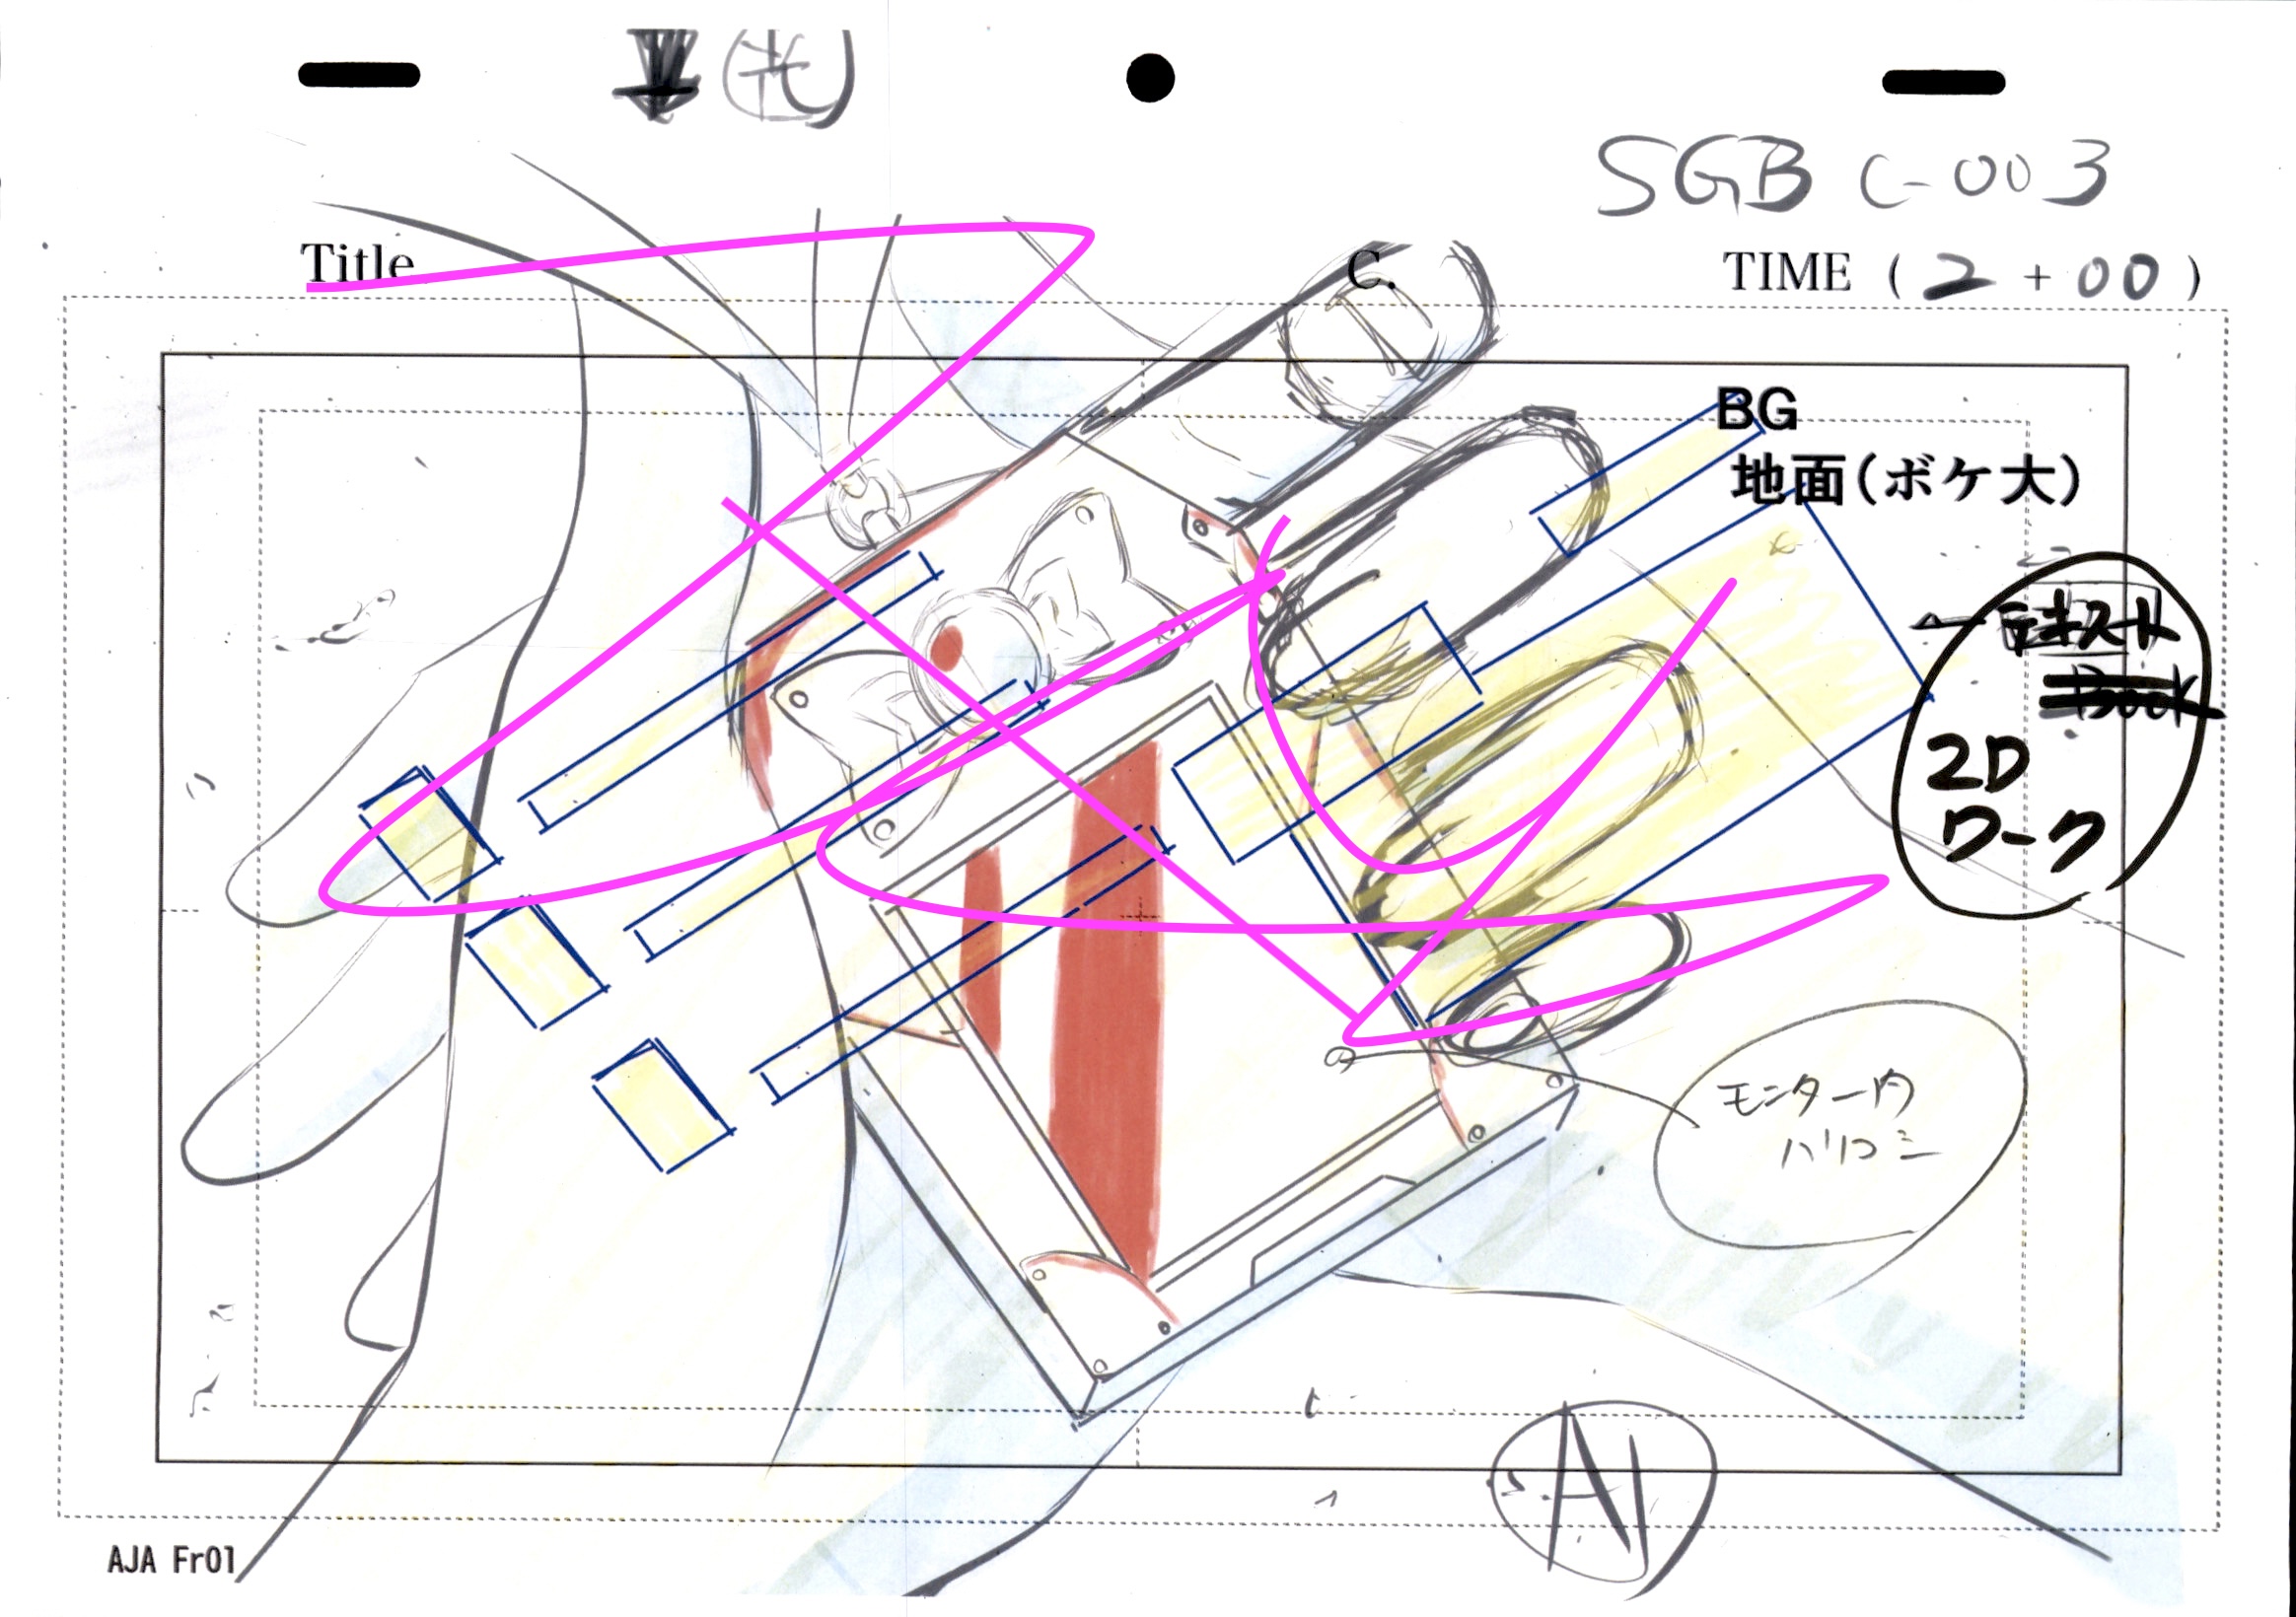 SGB C-003
Title
C.
TIME ( 2 + 00 )
BG
地面(ボケ大)
テキスト
Book
2D
ワーク
モニター内
ハリコミ
A
AJA Fr01